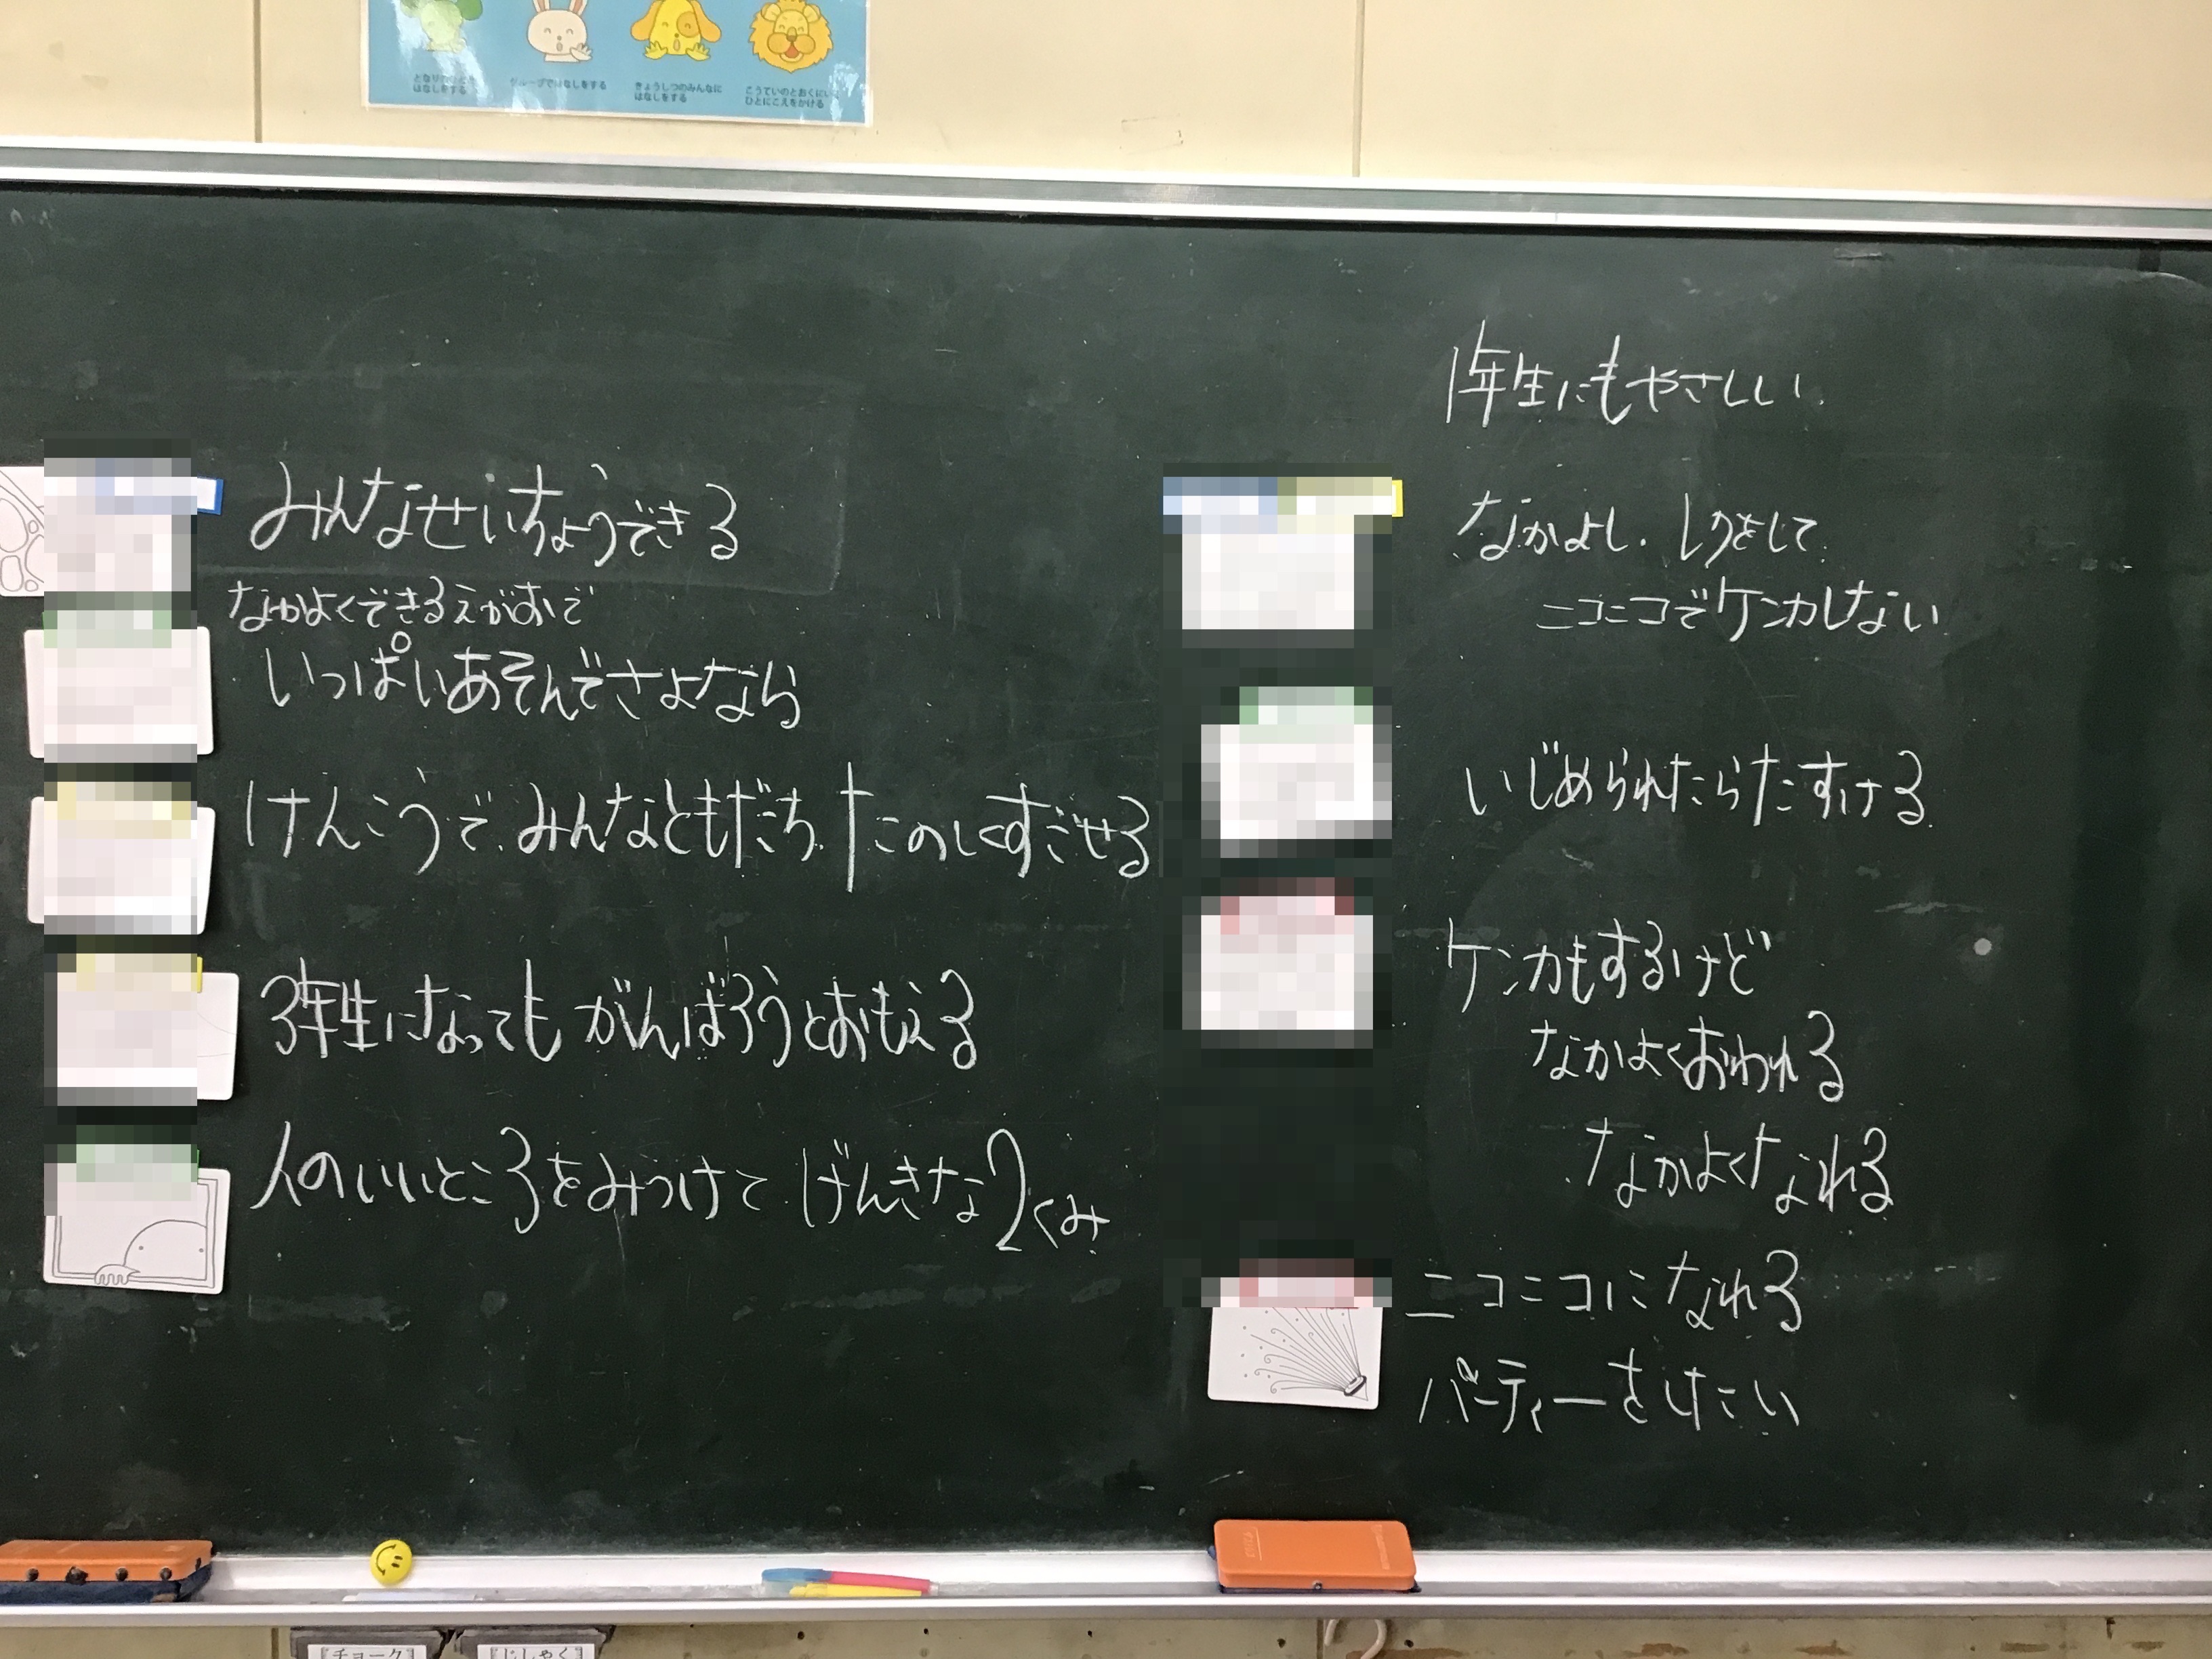 となりのひとと
はなしをする
グループではなしをする
きょうしつのみんなに
はなしをする
こうていのとおくにいる
ひとにこえをかける
みんなせいちょうできる
なかよくできるえがおで
いっぱいあそんでさよなら
けんこうで、みんなともだち、たのしくすごせる
3年生になっても がんばろうとおもえる
人のいいところをみつけて げんきな2くみ
1年生にもやさしい
なかよし. しゅをして
ニコニコでケンカしない
いじめられたらたすける
ケンカもするけど
なかよくおわれる
なかよくなれる
ニコニコになれる
パーティーをしたい
『チョーク』
『じしゃく』